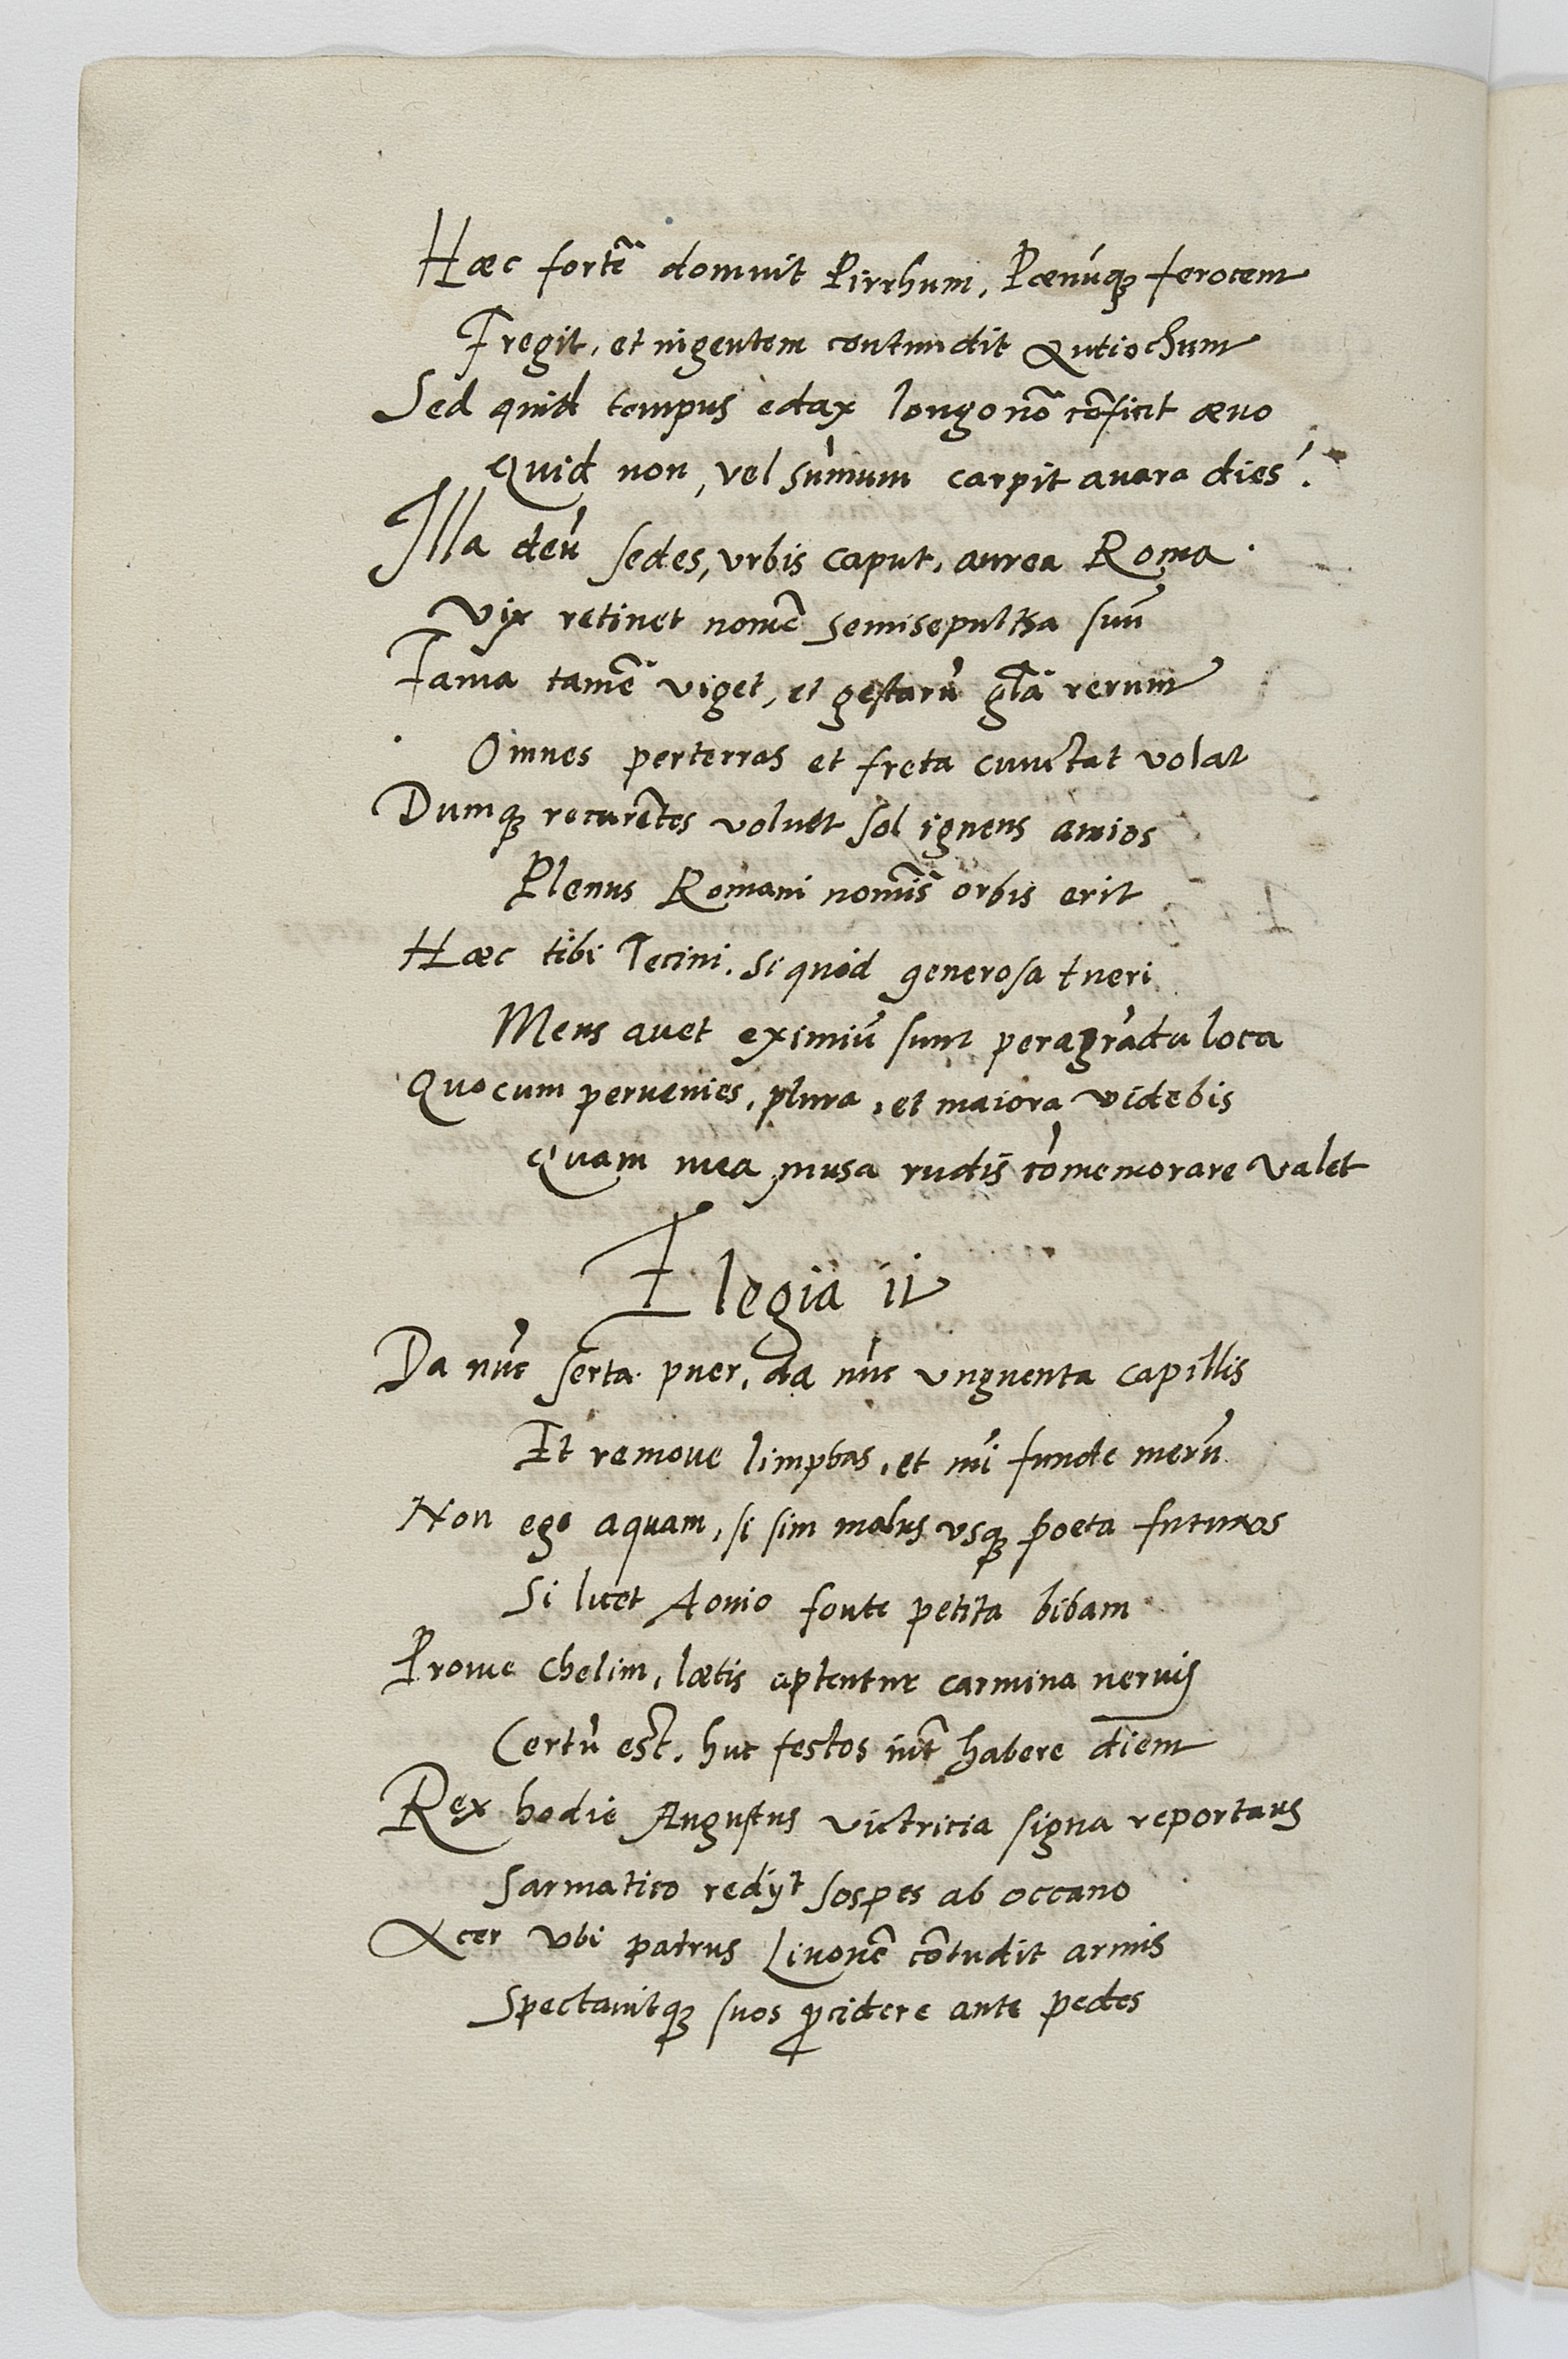 Hæc fortē domuit Pirrhum, Pœnúq3 ferocem
Fregit, et ingentem contundit Antiochum
Sed quid tempus edax longo nō cōficit æuo
Quid non, vel sum̄um carpit auara dies?
Illa deū sedes, vrbis caput, aurea Roma.
Vix retinet nomē semisepulta suū
Fama tamē viget, et gestarū gl̄a rerum
Omnes perterras et freta cunctat volat
Dumq3 recurētes voluet sol igneus annos
Plenus Romani nomīs orbis erit
Hæc tibi Tecini, si quid generosa tueri
Mens auet eximiū sunt peragrāda loca
Quocum peruenies, plura, et maiora videbis
Quam mea musa rudis cōmemorare valet
Elegia ii
Da nūc serta puer, da nūc vnguenta capillis
Et remoue limphas, et mi funde merū
Non ego aquam, si sim malus vsq3 poeta futuros
Si licet Aonio fonte petita bibam
Prome chelim, lætis aptentur carmina neruis
Certū est, huc festos int̄ habere diem
Rex hodie Augustus victricia signa reportans
Sarmatico redijt sospes ab occano
Acer vbi patrus Liuonē cōtudit armis
Spectauitq3 suos ꝓcidere ante pedes